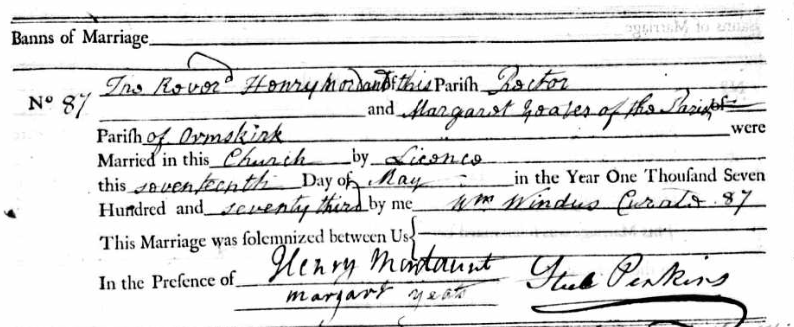 Banns of Marriage
The Reverd Henry Mordaunt of this Parish Rector
No 87 and Margaret Yeates of the Parish of
Parish of Ormskirk were
Married in this Church by Licence
this seventeenth Day of May in the Year One Thousand Seven
Hundred and seventy third by me Wm Windus Curate 87
This Marriage was solemnized between Us
In the Presence of Henry Mordaunt
margart yeats
Perkins